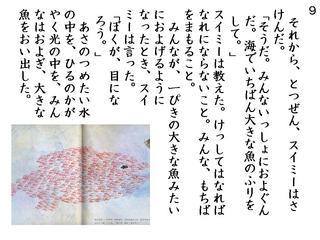 9
それから、とつぜん、スイミーはさ
けんだ。
「そうだ。みんないっしょにおよぐん
だ。海でいちばん大きな魚のふりを
して。」
スイミーは教えた。けっしてはなれば
なれにならないこと。みんな、もちば
をまもること。
みんなが、一ぴきの大きな魚みたい
におよげるように
なったとき、スイ
ミーは言った。
「ぼくが、目にな
ろう。」
あさのつめたい水
の中を、ひるのかが
やく光の中を、みん
なはおよぎ、大きな
魚をおい出した。